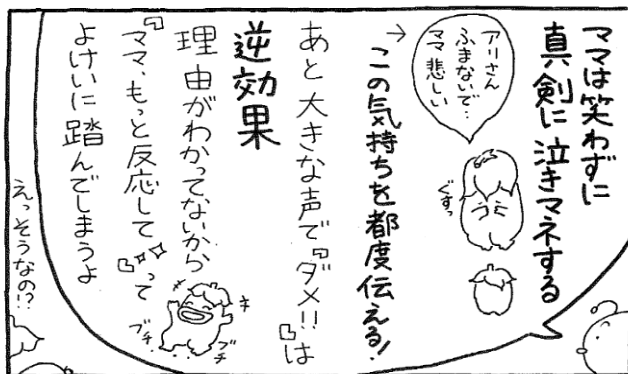 ママは笑わずに
真剣に泣きマネする
アリさん
ふまないで…
ママ悲しい
ぐすっ
→この気持ちを都度伝える!
あと大きな声で『ダメ!!』は
逆効果
理由がわかってないから
『ママ、もっと反応して』って
よけいに踏んでしまうよ
キ
キ
プチ
プチ
えっそうなの!?